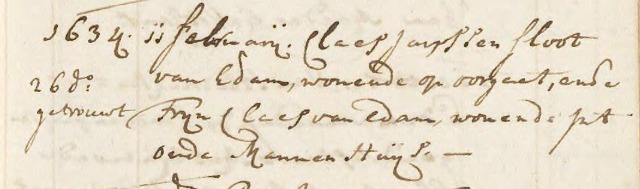 1634. 11 februarij. Claes Janssen Sloot
26 do. van Edam, wonende op voorgaet, ende
getrouwt Trijn Claes van Edam, wonende int
oude Mannen Huijs. —